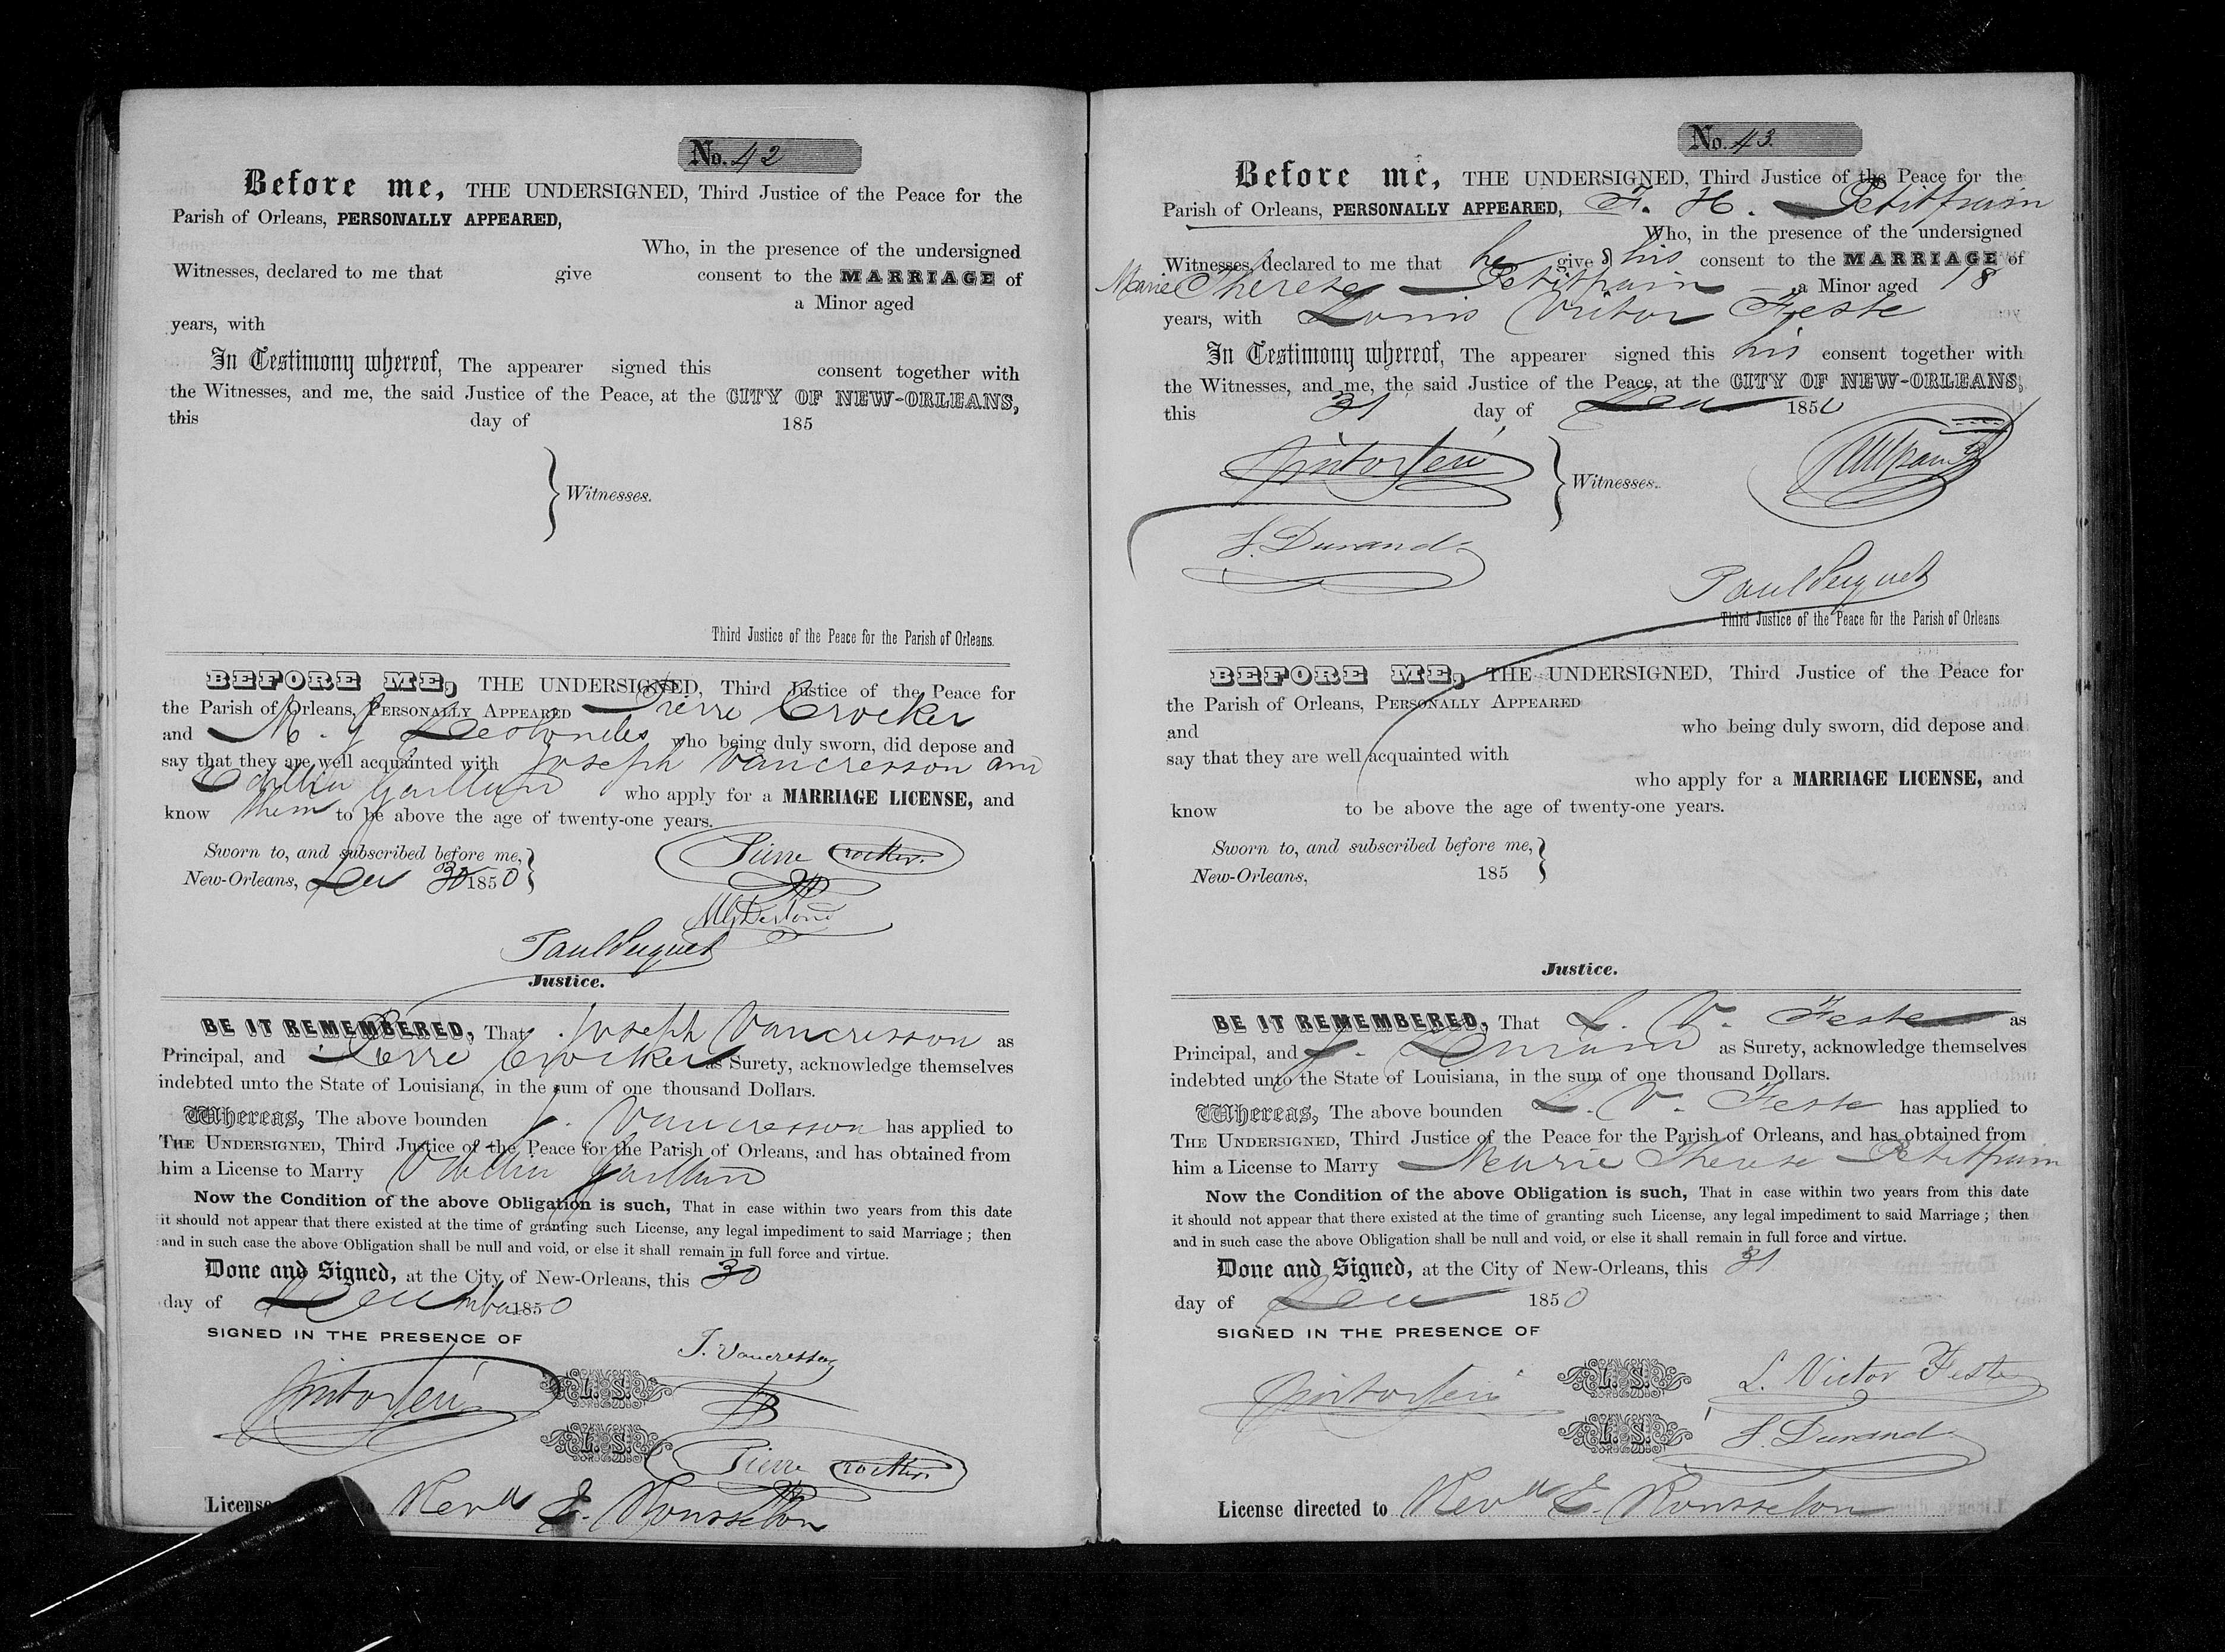 No. 42
Before me, THE UNDERSIGNED, Third Justice of the Peace for the
Parish of Orleans, PERSONALLY APPEARED,
Who, in the presence of the undersigned
Witnesses, declared to me that give consent to the MARRIAGE of
a Minor aged
years, with
In Testimony whereof, The appearer signed this consent together with
the Witnesses, and me, the said Justice of the Peace, at the CITY OF NEW-ORLEANS,
this day of 185
Witnesses.
Third Justice of the Peace for the Parish of Orleans.
BEFORE ME, THE UNDERSIGNED, Third Justice of the Peace for
the Parish of Orleans, PERSONALLY APPEARED Pierre Crocker
and M. J. who being duly sworn, did depose and
say that they are well acquainted with Joseph Vancresson and
who apply for a MARRIAGE LICENSE, and
know them to be above the age of twenty-one years.
Sworn to, and subscribed before me,
New-Orleans, 30 1850
Pierre Crocker
Justice.
BE IT REMEMBERED, That Joseph Vancresson as
Principal, and Pierre Crocker as Surety, acknowledge themselves
indebted unto the State of Louisiana, in the sum of one thousand Dollars.
Whereas, The above bounden J. Vancresson has applied to
THE UNDERSIGNED, Third Justice of the Peace for the Parish of Orleans, and has obtained from
him a License to Marry
Now the Condition of the above Obligation is such, That in case within two years from this date
it should not appear that there existed at the time of granting such License, any legal impediment to said Marriage ; then
and in such case the above Obligation shall be null and void, or else it shall remain in full force and virtue.
Done and Signed, at the City of New-Orleans, this 30
day of December 1850
SIGNED IN THE PRESENCE OF
J. Vancresson
L. S.
L. S.
Pierre Crocker
License Revd E. Rousselon
No. 43
Before me, THE UNDERSIGNED, Third Justice of the Peace for the
Parish of Orleans, PERSONALLY APPEARED, F. H. Petitpain
Who, in the presence of the undersigned
Witnesses, declared to me that he gives his consent to the MARRIAGE of
Marie Therese Petitpain a Minor aged 18
years, with Louis Victor Feste
In Testimony whereof, The appearer signed this his consent together with
the Witnesses, and me, the said Justice of the Peace, at the CITY OF NEW-ORLEANS,
this 31 day of 1850
Witnesses.
Durand
Third Justice of the Peace for the Parish of Orleans
BEFORE ME, THE UNDERSIGNED, Third Justice of the Peace for
the Parish of Orleans, PERSONALLY APPEARED
and who being duly sworn, did depose and
say that they are well acquainted with
who apply for a MARRIAGE LICENSE, and
know to be above the age of twenty-one years.
Sworn to, and subscribed before me,
New-Orleans, 185
Justice.
BE IT REMEMBERED, That L. V. Feste as
Principal, and Durand as Surety, acknowledge themselves
indebted unto the State of Louisiana, in the sum of one thousand Dollars.
Whereas, The above bounden L. V. Feste has applied to
THE UNDERSIGNED, Third Justice of the Peace for the Parish of Orleans, and has obtained from
him a License to Marry Marie Therese Petitpain
Now the Condition of the above Obligation is such, That in case within two years from this date
it should not appear that there existed at the time of granting such License, any legal impediment to said Marriage ; then
and in such case the above Obligation shall be null and void, or else it shall remain in full force and virtue.
Done and Signed, at the City of New-Orleans, this 31
day of 1850
SIGNED IN THE PRESENCE OF
L. S.
L. Victor Feste
L. S.
Durand
License directed to Revd E. Rousselon